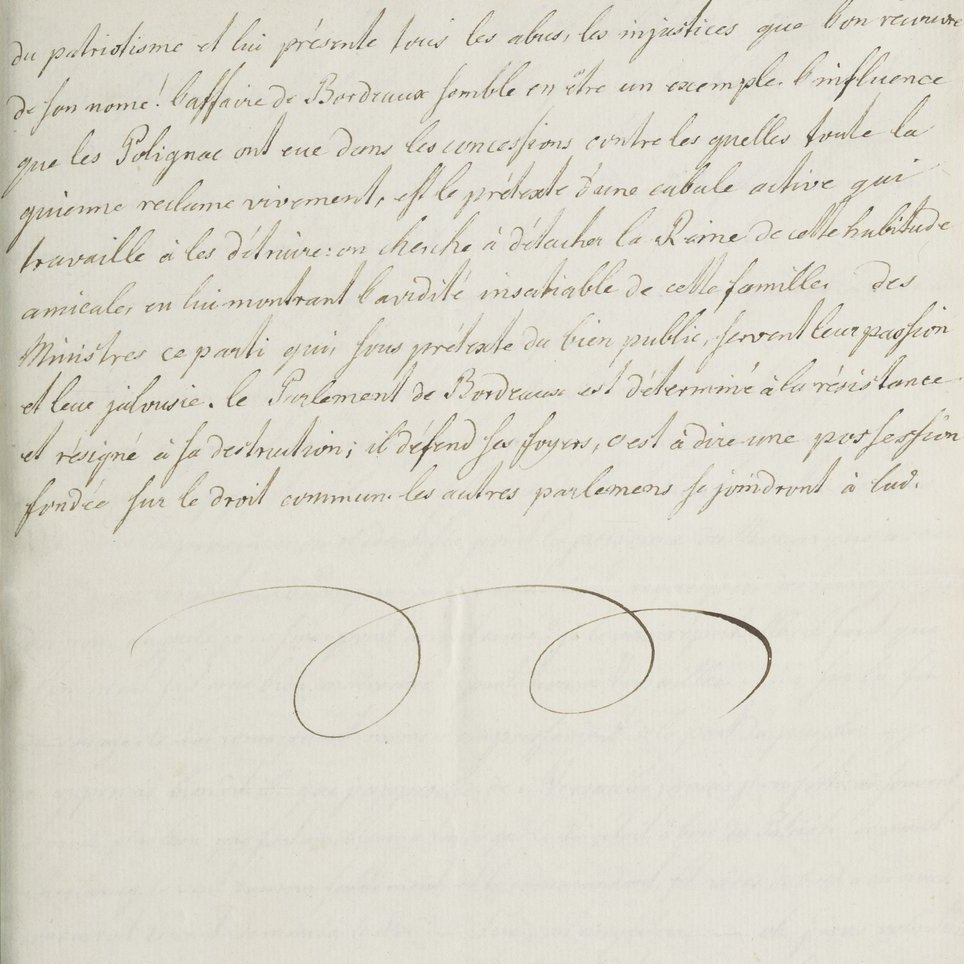 du patriotisme et lui présente tous les abus, les injustices que l'on recouvre
de son nome! l'affaire de Bordeaux semble en être un exemple. l'influence
que les Polignac ont eue dans les concessions contre les quelles toute la
guienne reclame vivement, est le prétexte d'une cabale active qui
travaille à les détruire: on cherche à détacher la Reine de cette habitude
amicale, en lui montrant l'avidité insatiable de cette famille. des
Ministres ce parti qui, sous prétexte du bien public, servent leur passion
et leur jalousie. le Parlement de Bordeaux est déterminé à la résistance
et résigné à sa destruction; il défend ses foyers, c'est à dire une possession
fondée sur le droit commun. les autres parlemens se joindront à lui.